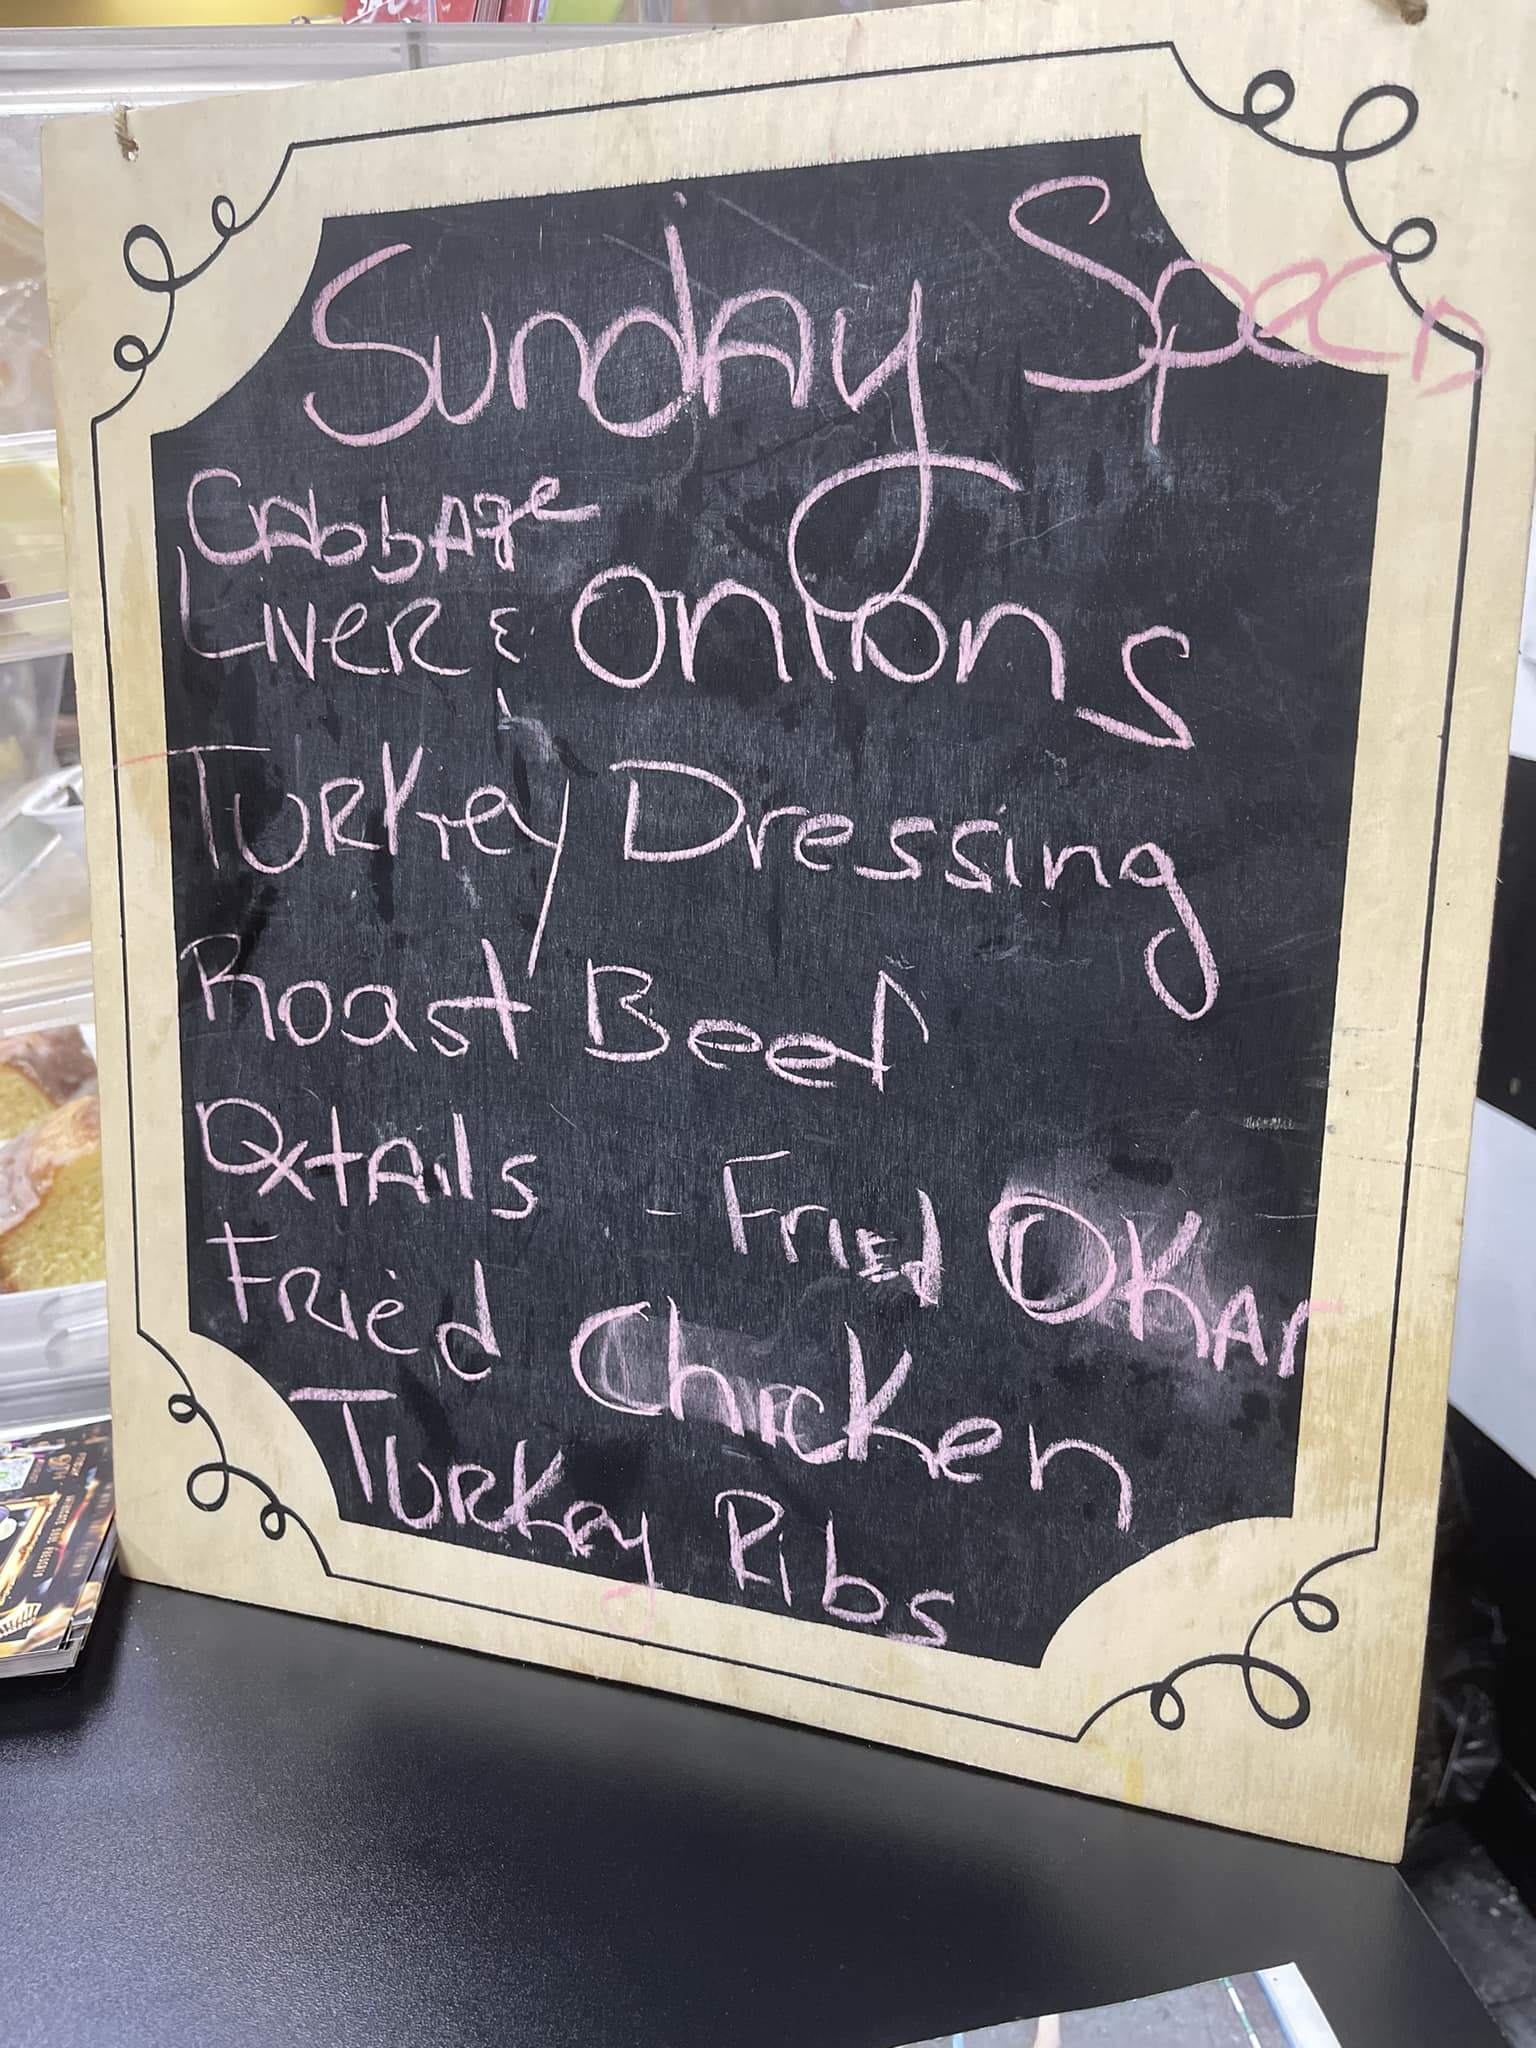 Sunday Speci
Cabbage
Liver & Onions
Turkey Dressing
Roast Beef
Oxtails - Fried Okar
Fried Chicken
Turkey Ribs